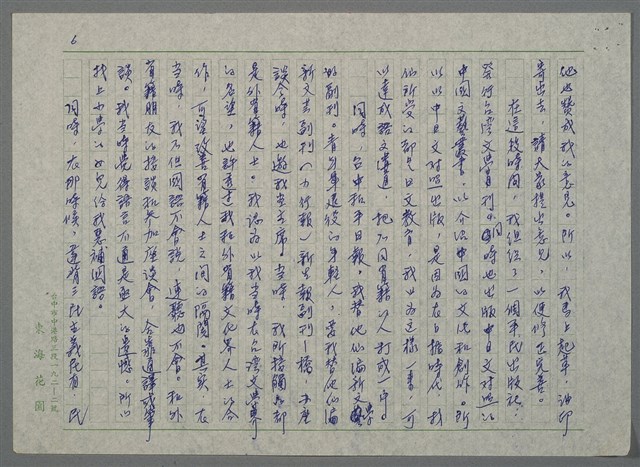 他也贊成我的意見。所以，我馬上起草，油印
寄出去，請大家提出意見，以便修正完善。
在這段時間，我組織了一個平民出版社，
發行台灣文學月刊，同時也出版中日文對照的
中國文藝叢書，以介紹中國的文化和創作。所
以以中日文對照出版，是因為在日據時代，我
們所受的都是日文教育，我以為這樣一來，可
以達成語文溝通，把不同省籍的人打成一片。
同時，台中和平日報，我替他們編新文學
的副刊。青年軍退役的年輕人，要我替他們編
新文芸副刊（力行報）新生報副刊「橋」，座
談會時，也邀我當主席，當時，我所接觸的都
是外省籍人士。我認為以我當時在台灣文學界
的名望，也許透過我和外省籍文化界人士的合
作，可望改善省籍人士之間的隔閡。其實，在
當時，我不但國語不會說，連聽也不會。和外
省籍朋友的接談和參加座談會，全靠通譯或筆
談。我當時覺得語言不通是無大的遺憾。所以
找上小學的女兒給我惡補國語。
同時，在那時候，還有三民主義民有，民
6
台中市中港路三段一八二-二號
東海花園